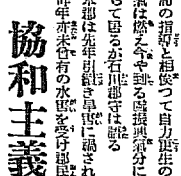 の指導と相俟つて自力更生の
氣は燃え、や到る處振興氣分に
ちて居る石川郡守は語る
本郡は先年引續き旱害に禍され
昨年亦未曾有の水害を受け郡民
協和主義